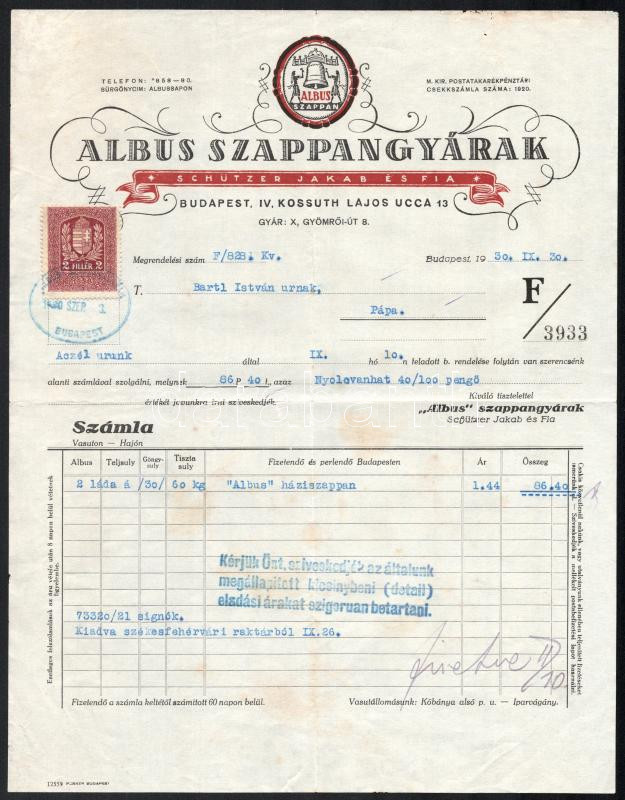 TELEFON: *858—80.
SÜRGÖNYCIM: ALBUSSAPON
ALBUS
SZAPPAN
M. KIR. POSTATAKARÉKPÉNZTÁRI
CSEKKSZÁMLA SZÁMA: 1920.
ALBUS SZAPPANGYÁRAK
SCHÜTZER JAKAB ÉS FIA
BUDAPEST, IV, KOSSUTH LAJOS UCCA 13
GYÁR: X, GYÖMRŐI-ÚT 8.
2 FILLÉR 2
1930 SZEP
BUDAPEST
Megrendelési szám F/828. Kv.
Budapest, 1930. IX. 30.
T. Bartl István urnak,
Pápa.
F/3933
Aczél urunk által IX. hó 10.n feladott b. rendelése folytán van szerencsénk
alanti számlával szolgálni, melynek 86 P 40 f., azaz Nyolcvanhat 40/100 pengő
értékét javunkra irni sziveskedjék.
Kiváló tisztelettel
„Albus" szappangyárak
Schützer Jakab és Fia
Számla
Vasuton — Hajón
Albus Teljsuly Göngysuly Tiszta suly Fizetendő és perlendő Budapesten Ár Összeg
2 láda á /30/ 60 kg "Albus" háziszappan 1.44 86.40
Kérjük Önt, sziveskedjék az általunk
megállapitott kicsinybeni (detail)
eladási árakat szigoruan betartani.
73320/21 signók.
Kiadva székesfehérvári raktárból IX.26.
Esetleges felszólamlások az áru vétele után 8 napon belül vétetnek figyelembe.
Fizetendő a számla keltétől számított 60 napon belül.
Vasutállomásunk: Kőbánya alsó p. u. — Iparvágány.
12559 PUSKER BUDAPEST